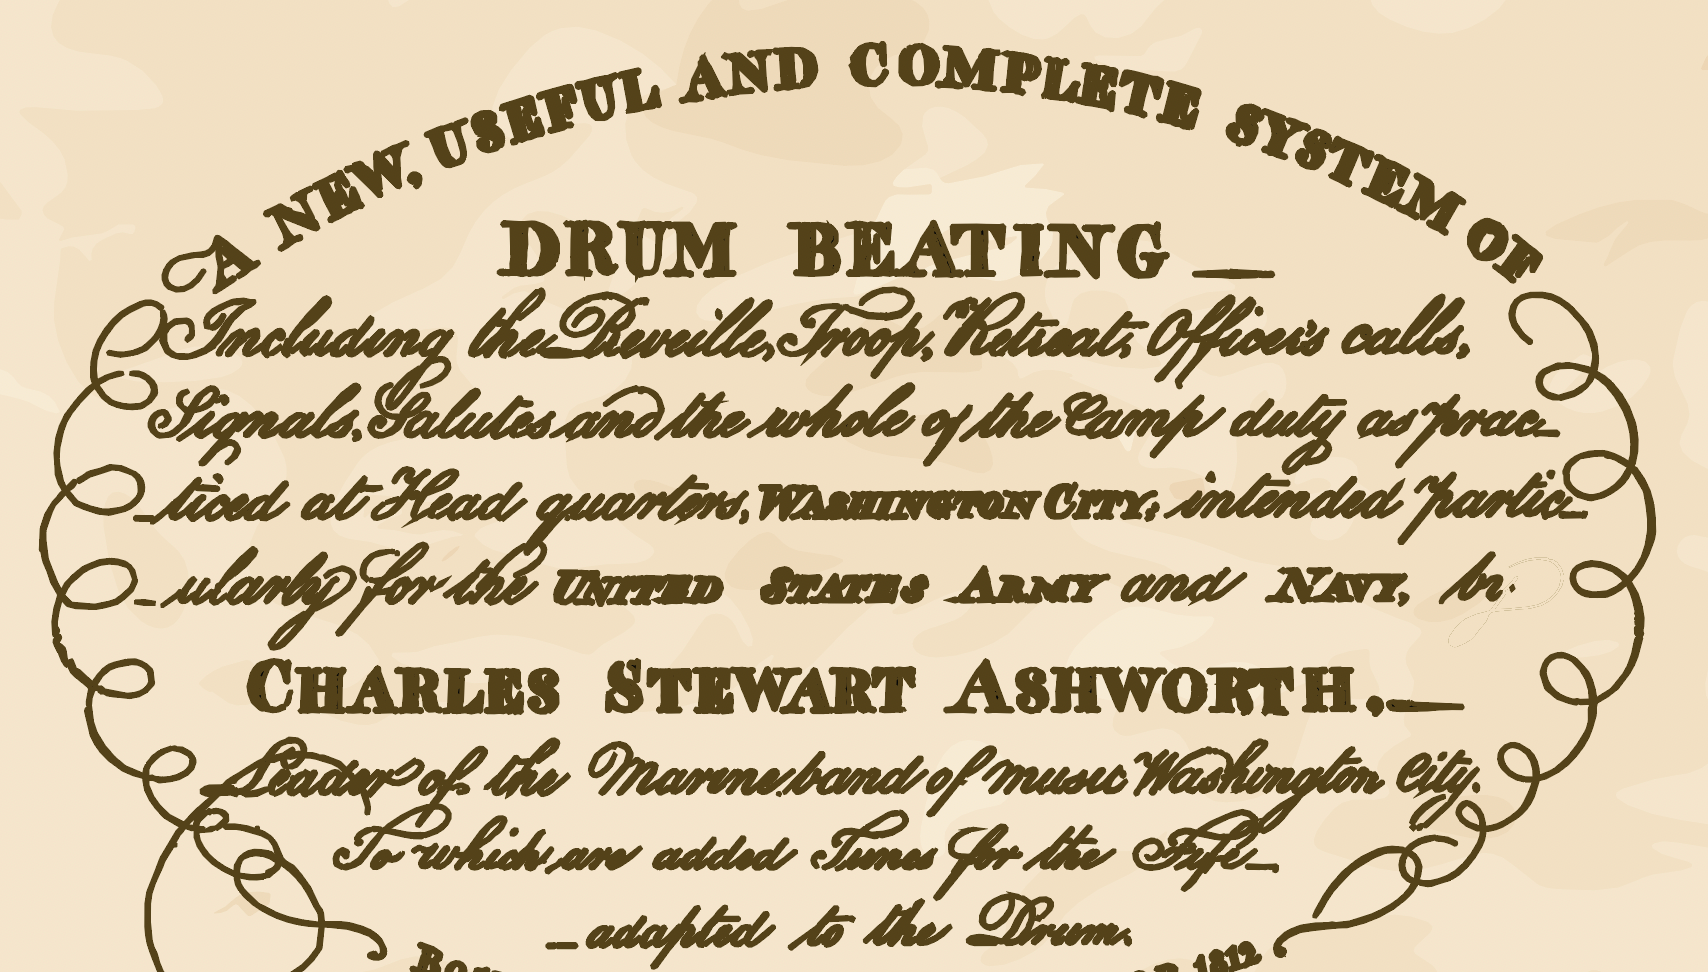 A NEW, USEFUL AND COMPLETE SYSTEM OF
DRUM BEATING —
Including the Reveille, Troop, Retreat, Officer's calls,
Signals, Salutes and the whole of the Camp duty as prac-
-ticed at Head quarters, WASHINGTON CITY; intended partic-
-ularly for the UNITED STATES ARMY and NAVY, by
CHARLES STEWART ASHWORTH. —
Leader of the Marine band of music Washington City.
To which are added Tunes for the Fife —
— adapted to the Drum.
1812